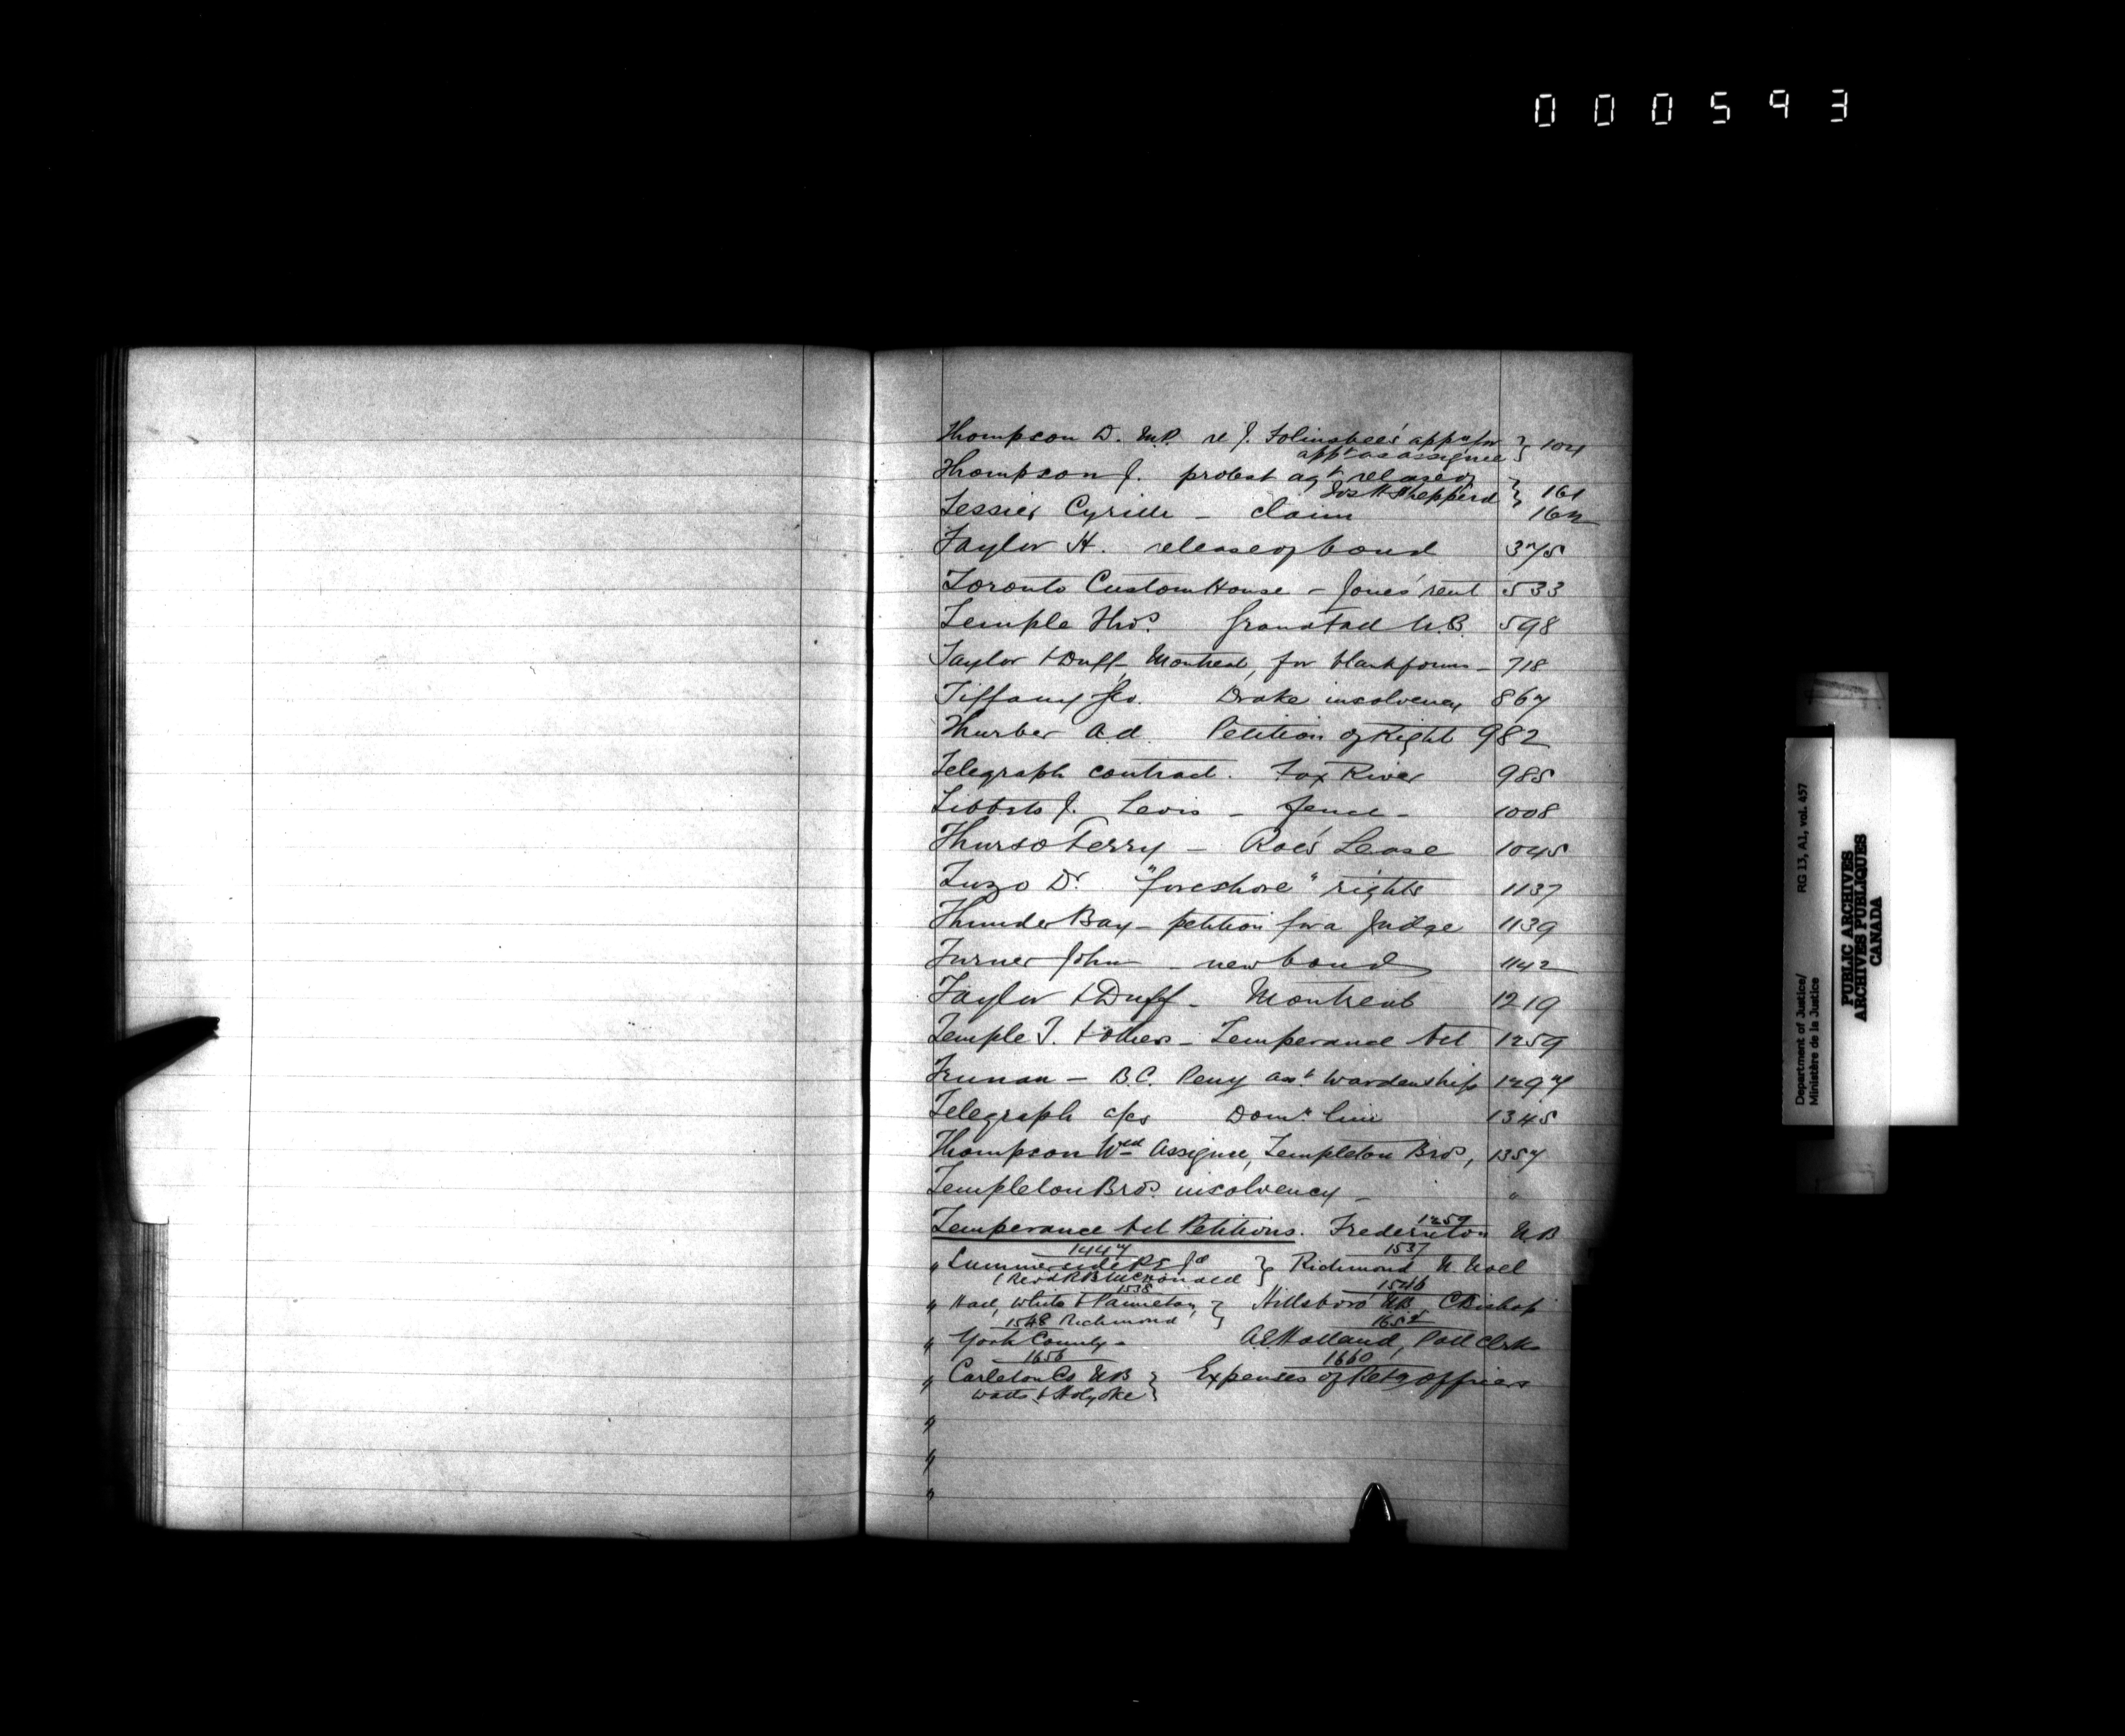 000593
Thompson D. M.P. re J. Folinsbee's appn for } 104
appt as assignee
Thompson J. protest agt release of } 161
Jos H Shepperd
Tessier Cyrille - claim 162
Taylor H. release of bond 375
Toronto Custom House - Jones' rent 533
Temple Thos. Grand Fall N.B. 598
Taylor & Duff, Montreal, for blank forms - 718
Tiffany Geo. Drake insolvency 867
Thurber A.d. Petition of Right 982
Telegraph contract. Fox River 985
Tibbits J. Levis - fence - 1008
Thurso Ferry - Roe's Lease 1045
Tuzo Dr. "foreshore" rights 1137
Thunder Bay - petition for a Judge 1139
Turner John - new bond 1142
Taylor & Duff - Montreal 1219
Temple T. & others - Temperance Act 1259
Trunan - B.C. Peny asst Wardenship 1297
Telegraph a/cs Domn line 1345
Thompson Wm Assignee, Templeton Bros, 1357
Templeton Bros. insolvency - "
1259
Temperance Act Petitions. Fredericton N.B
1447 1537
" Summerside P.E. Jd } Richmond N. Noel
( Revd R B McDonald
1538 1546
" Hall, White & Panneton, } Hillsboro N.B. C Bishop
Richmond
1548 1652
" York County - A E Holland, Poll Clerk
1656 1660
" Carleton Co N.B } Expenses of Retg Officers
Watts & Holyoke
"
"
"
Department of Justice/
Ministère de la Justice
RG 13, A1, vol. 457
PUBLIC ARCHIVES
ARCHIVES PUBLIQUES
CANADA